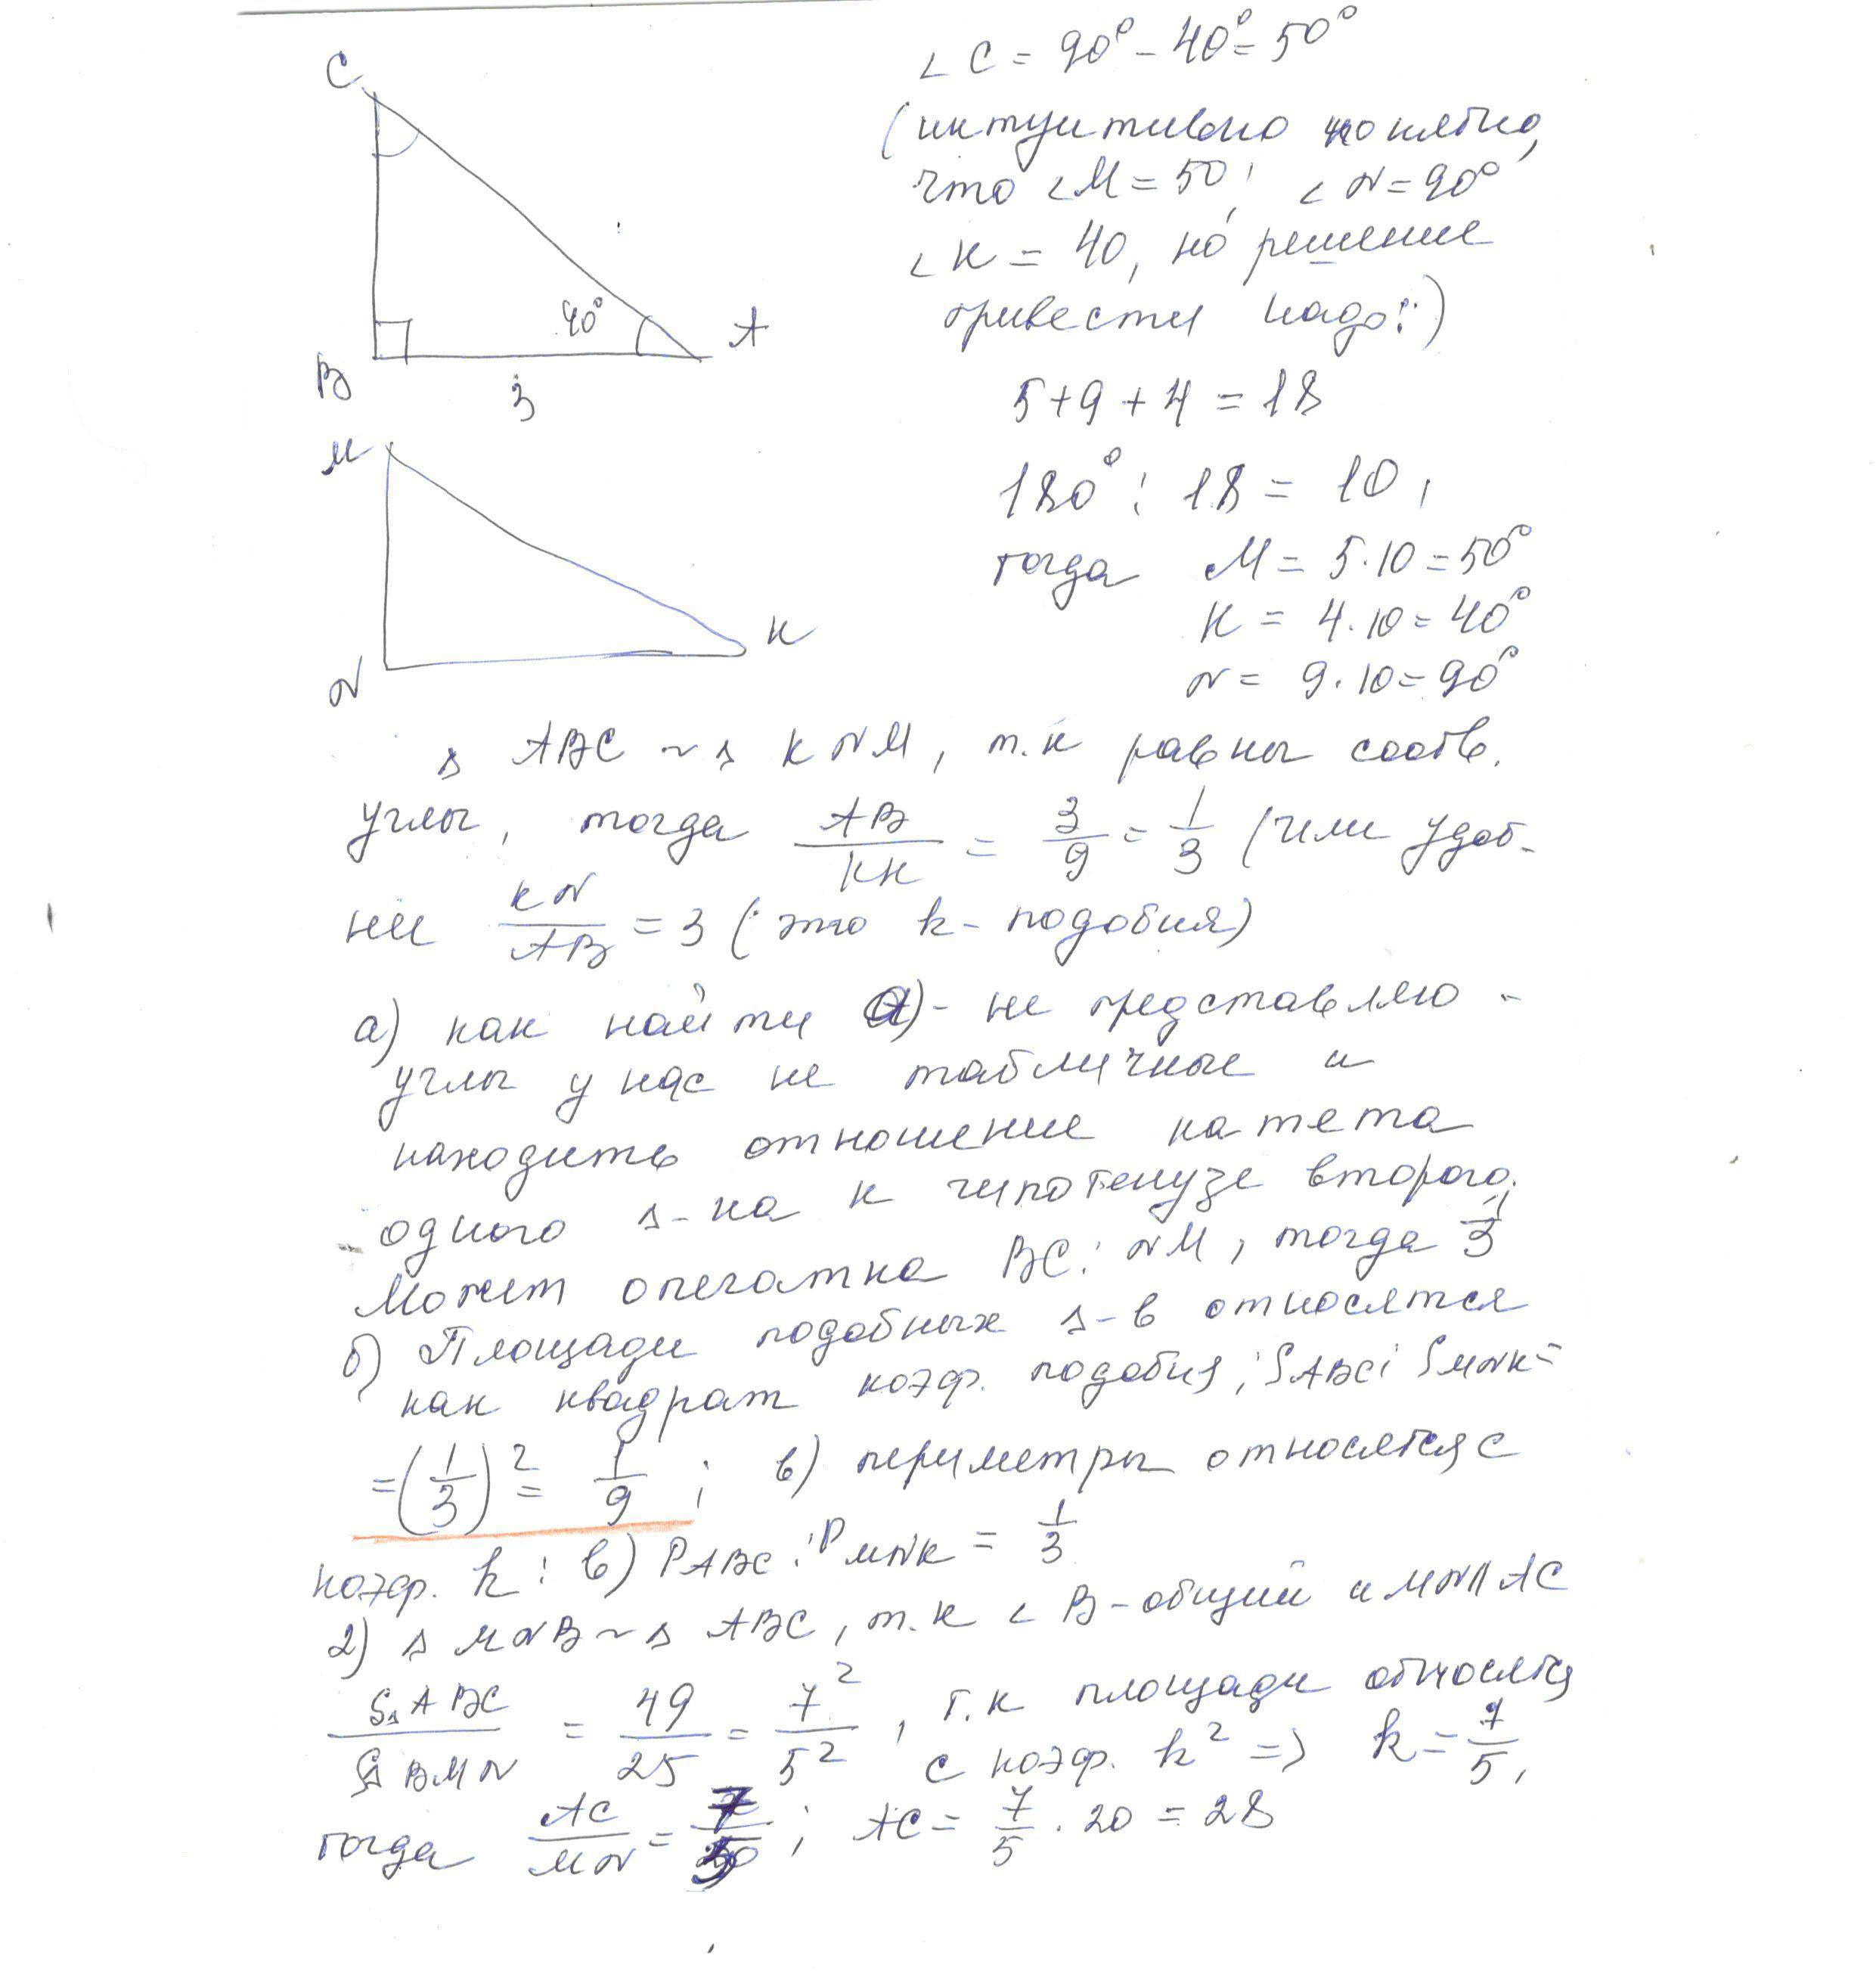 C
40°
A
B
3
∠C = 90° - 40° = 50°
(интуитивно понятно,
что ∠M = 50; ∠N = 90°
∠K = 40, но решение
привести надо:)
5+9+4 = 18
180° : 18 = 10,
тогда M = 5·10 = 50°
K = 4·10 = 40°
N = 9·10 = 90°
M
K
N
Δ ABC ~ Δ KNM, т.к равны соотв.
углы, тогда AB/KN = 3/9 = 1/3 (или удоб-
ней KN/AB = 3 (это k- подобия)
а) как найти а) - не представляю -
углы у нас не табличные и
находить отношение катета
одного Δ-ка к гипотенузе второго.
Может опечатка BC : NM, тогда 1/3
б) Площади подобных Δ-в относятся
как квадрат коэф. подобия; SABC : SMNK =
= (1/3)² = 1/9 ; в) периметры относятся с
коэф. k : в) PABC : PMNK = 1/3
2) Δ MNB ~ Δ ABC, т.к ∠ B - общий и MN || AC
SΔABC/SΔBMN = 49/25 = 7²/5², т.к площади относятся
с коэф. k² => k = 7/5,
тогда AC/MN = 7/5 ; AC = 7/5 · 20 = 28